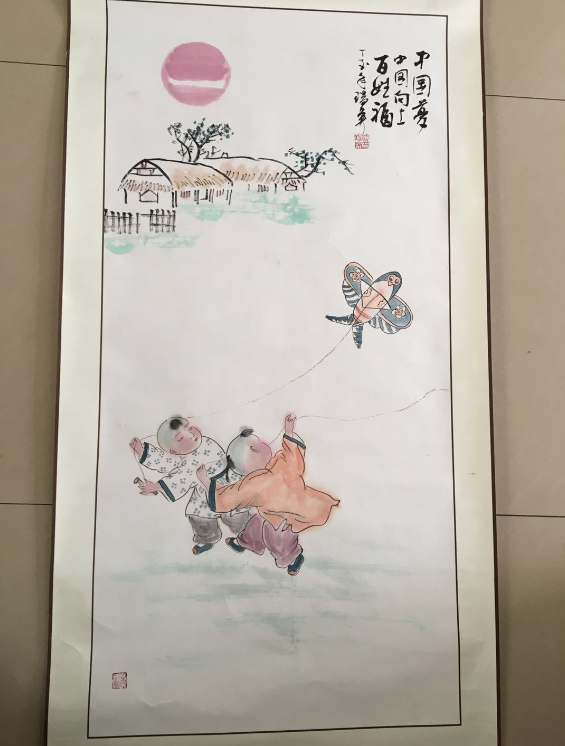 中国梦
中国向上
百姓福
丁酉年